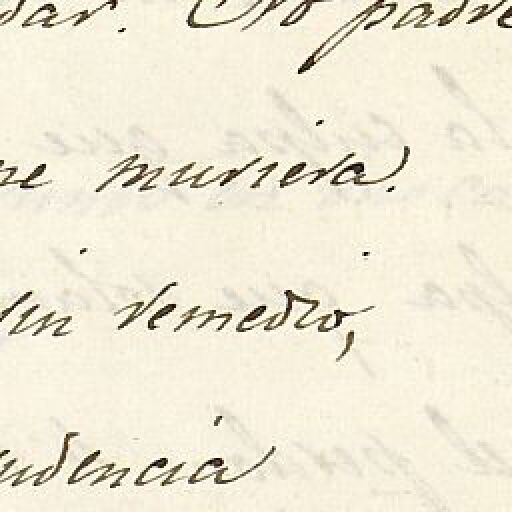 dar. Otro padre
ne muriera.
sin remedio,
udencia